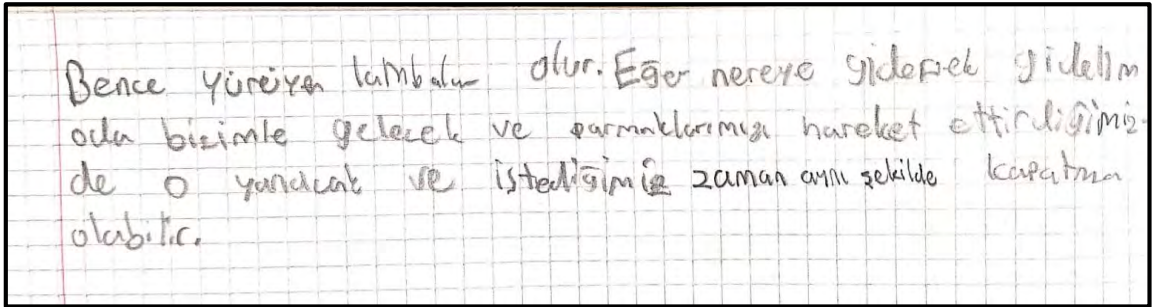 Bence yüreyen lambalar olur. Eğer nereye gidersek gidelim
oda bizimle gelecek ve parmaklarımızı hareket ettirdiğimiz-
de o yanacak ve istediğimiz zaman aynı şekilde kapatma
olabilir.